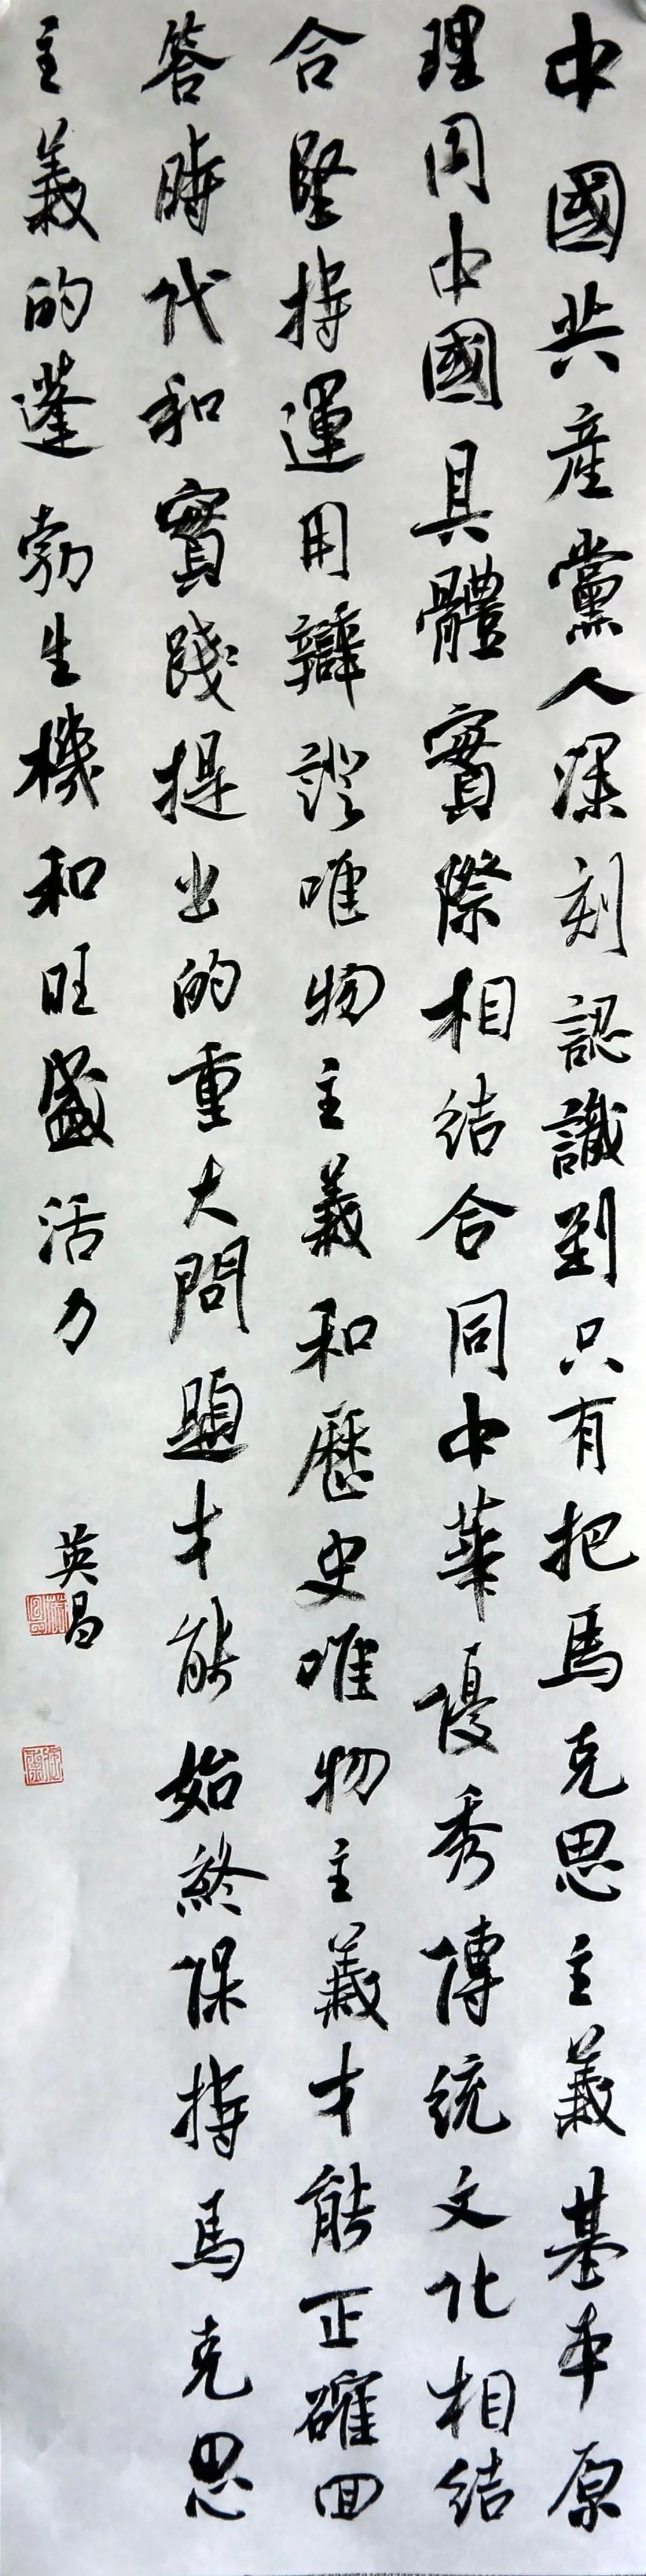 中國共產黨人深刻認識到只有把馬克思主義基本原
理同中國具體實際相結合同中華優秀傳統文化相結
合堅持運用辯證唯物主義和歷史唯物主義才能正確回
答時代和實踐提出的重大問題才能始終保持馬克思
主義的蓬勃生機和旺盛活力
英昌